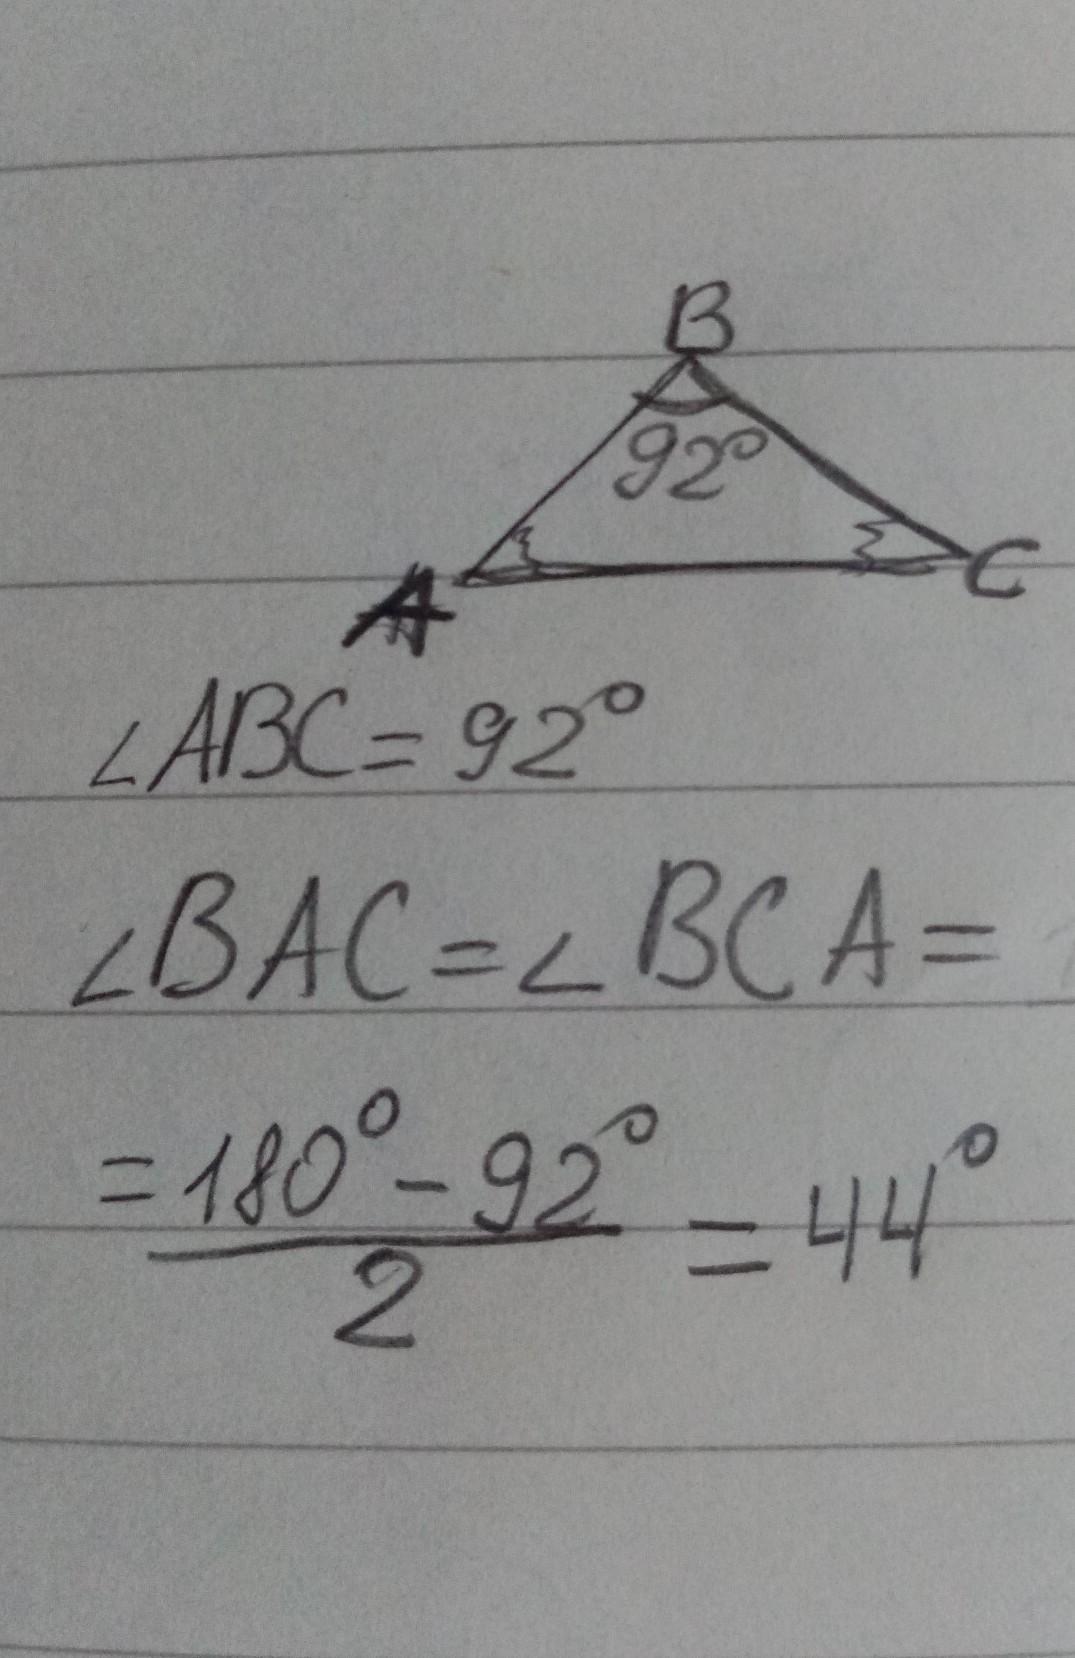 B
92°
A
C
∠ABC = 92°
∠BAC = ∠BCA =
= 180° - 92° / 2 = 44°